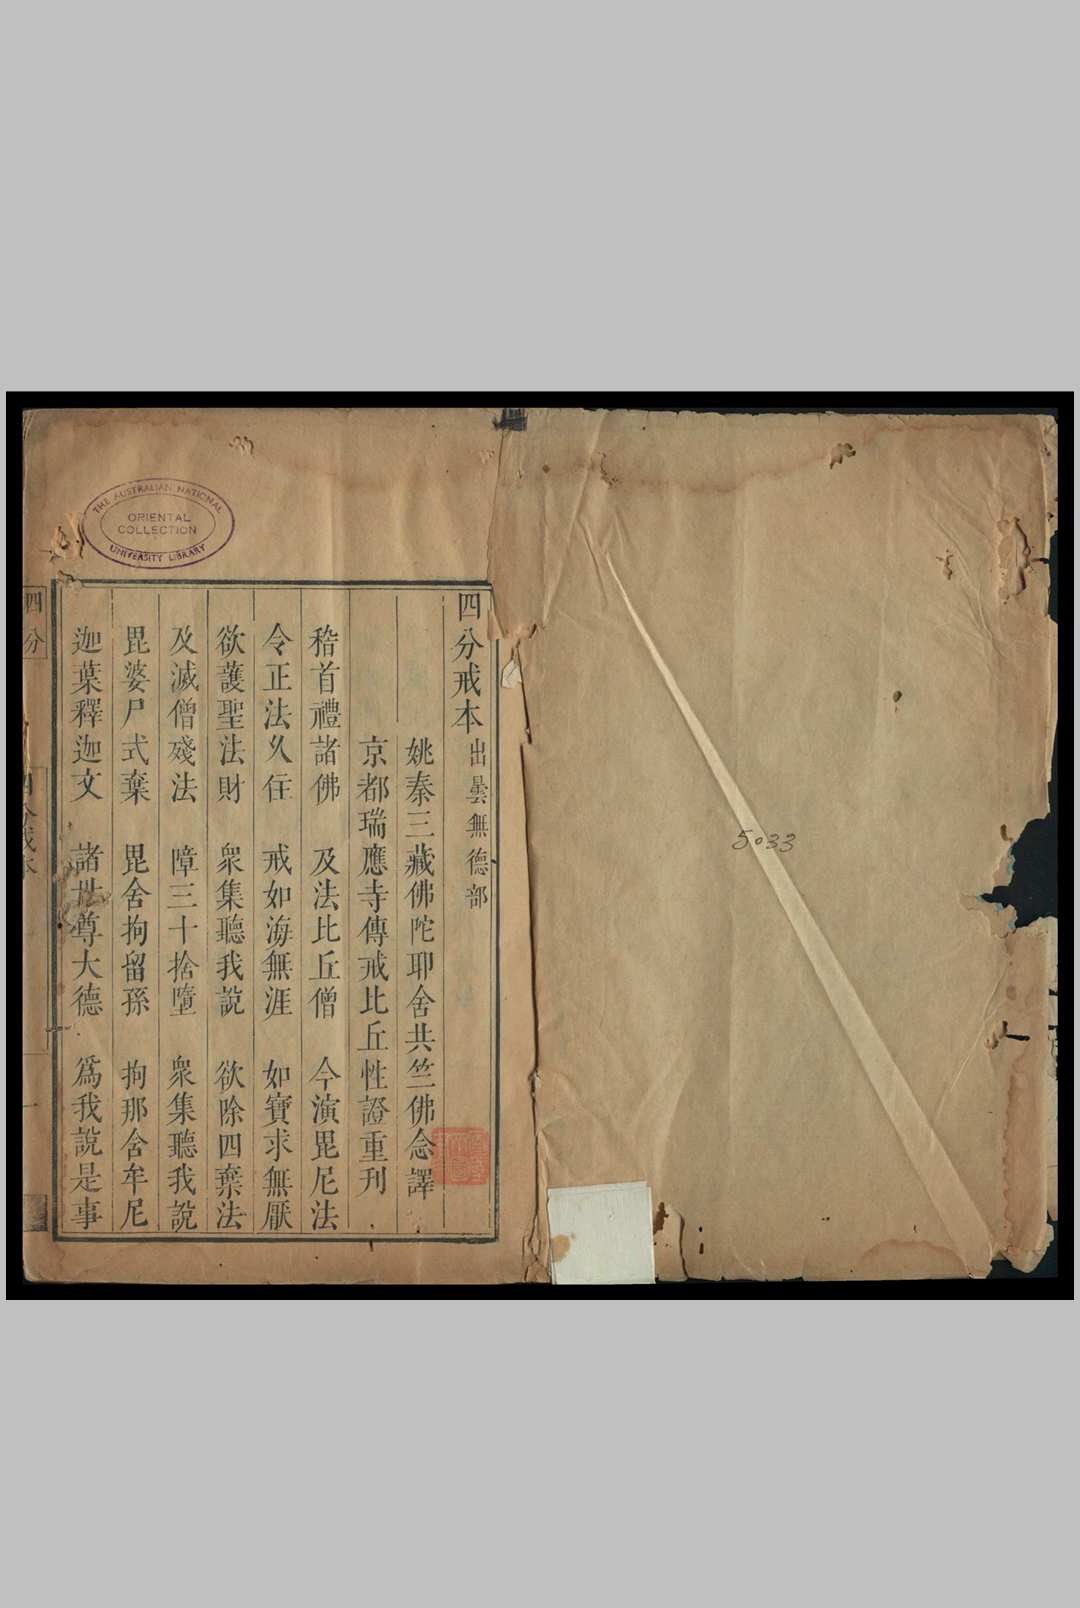 四分戒本 出曇無德部
姚秦三藏佛陀耶舍共竺佛念譯
京都瑞應寺傳戒比丘性證重刊
稽首禮諸佛 及法比丘僧 今演毘尼法
令正法久住 戒如海無涯 如寶求無厭
欲護聖法財 衆集聽我說 欲除四棄法
及滅僧殘法 障三十捨墮 衆集聽我說
毘婆尸式棄 毘舍拘留孫 拘那含牟尼
迦葉釋迦文 諸世尊大德 爲我說是事
四分
四分戒本
一
THE AUSTRALIAN NATIONAL
ORIENTAL
COLLECTION
UNIVERSITY LIBRARY
5033